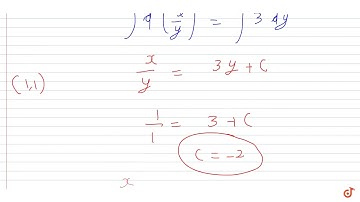 ∫ d (x/y) = ∫ 3 dy
x/y = 3y + C
(1,1)
1/1 = 3 + C
C = -2
x